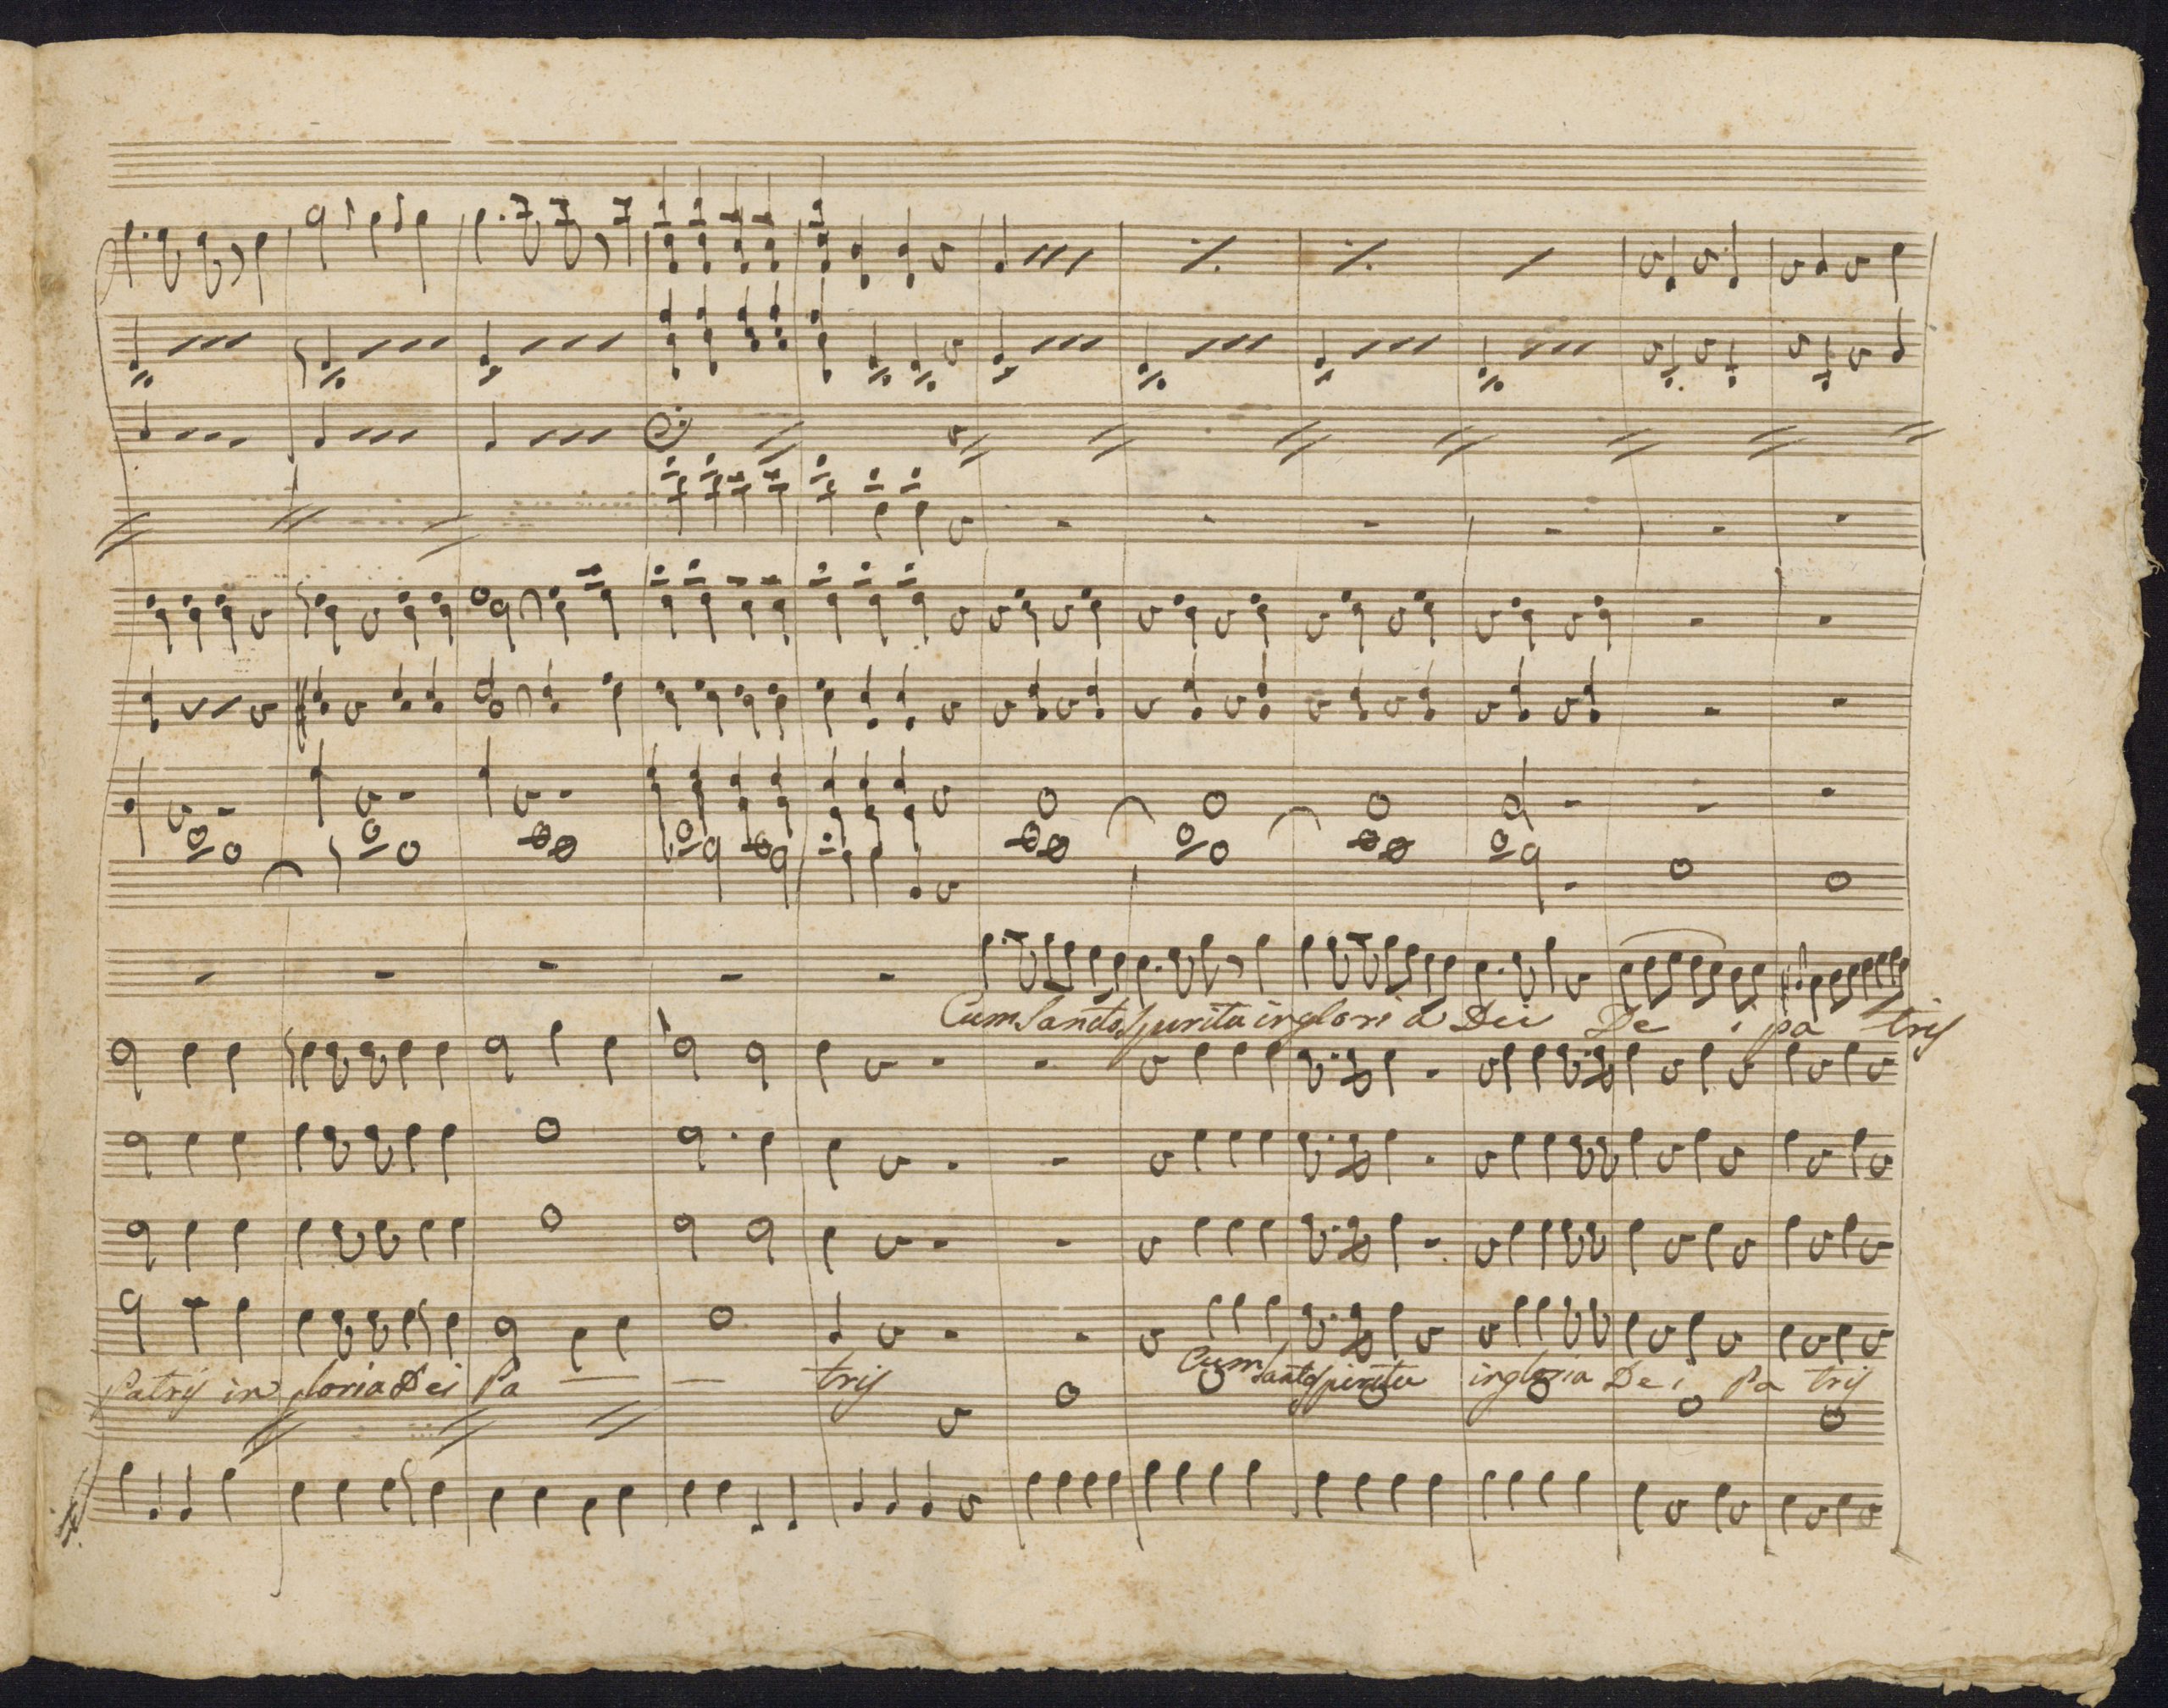 Cum Sancto Spirito in gloria Dei De i pa tris
Patris in gloria Dei Pa tris Cum Sancto Spiritu in gloria Dei Pa tris